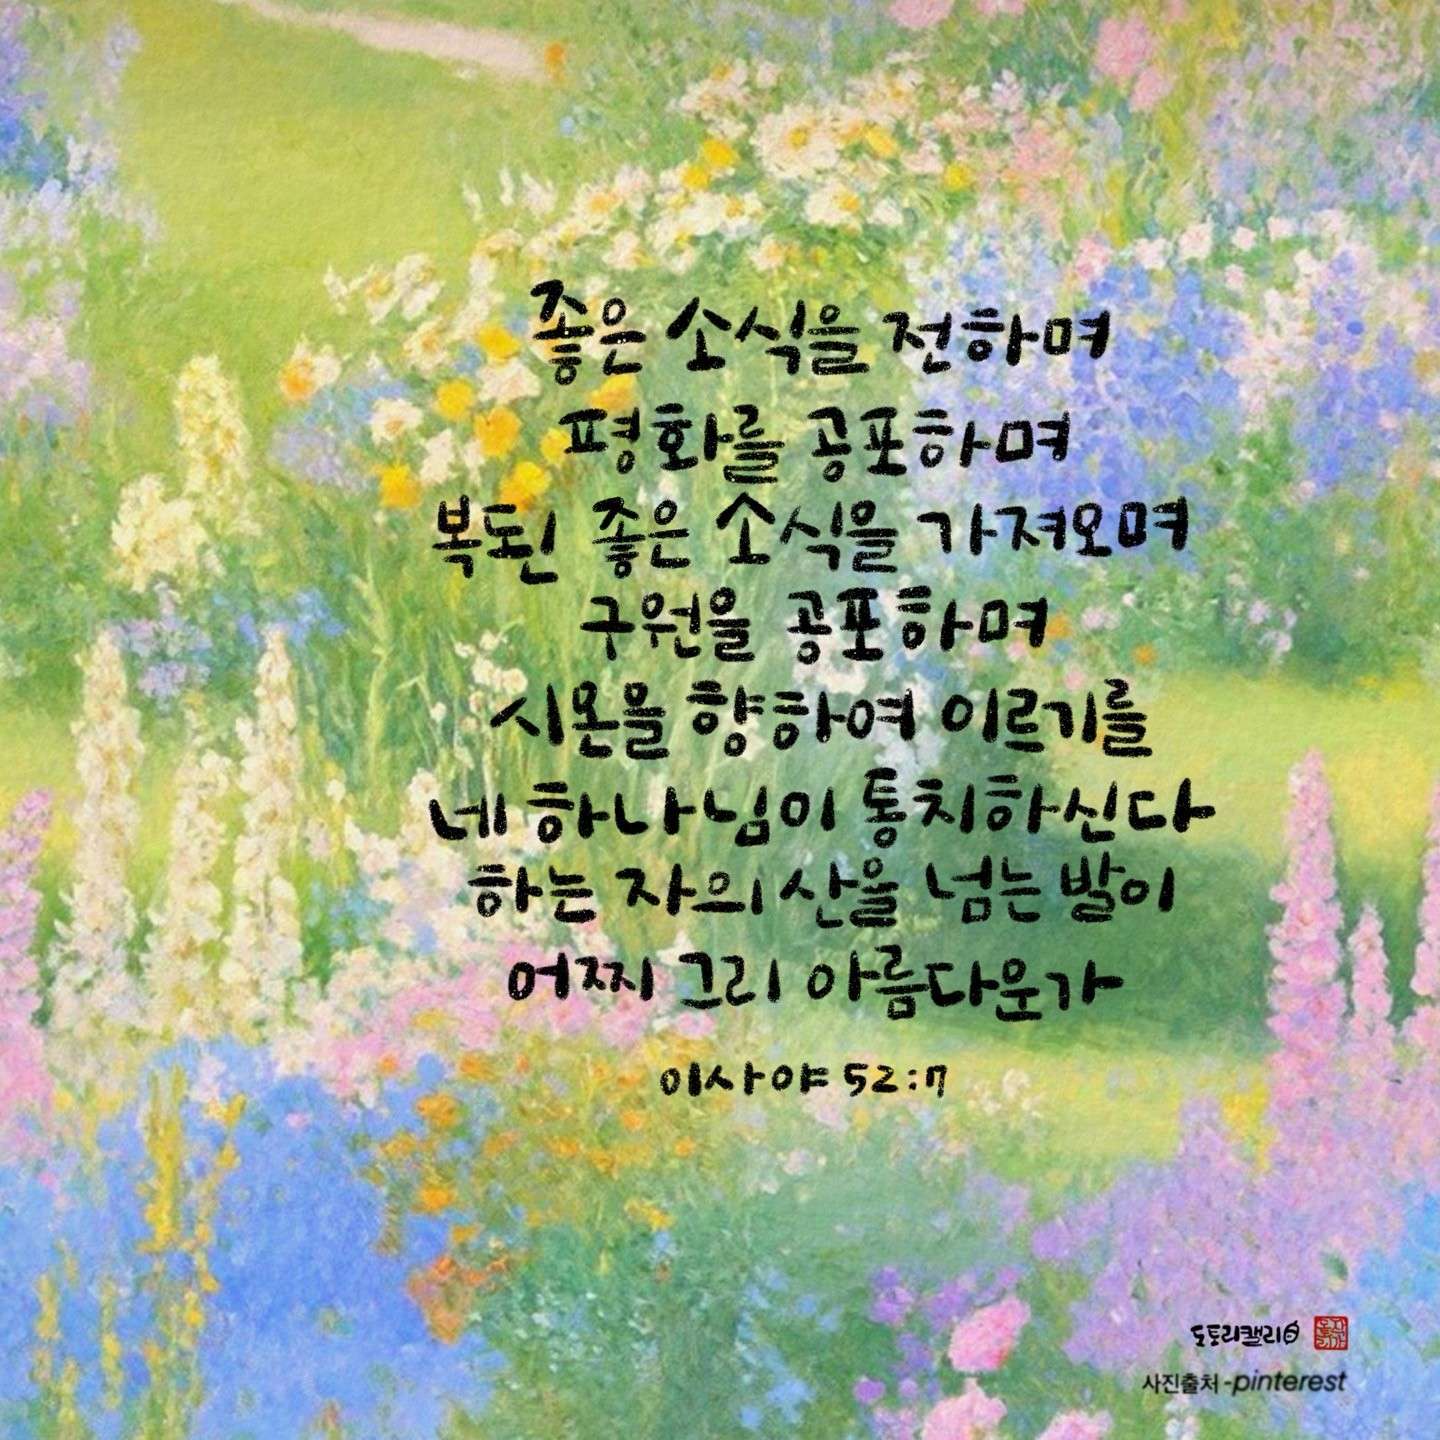 좋은 소식을 전하며
평화를 공포하며
복된 좋은 소식을 가져오며
구원을 공포하며
시온을 향하여 이르기를
네 하나님이 통치하신다
하는 자의 산을 넘는 발이
어찌 그리 아름다운가
이사야 52:7
도토리캘리
사진출처-pinterest